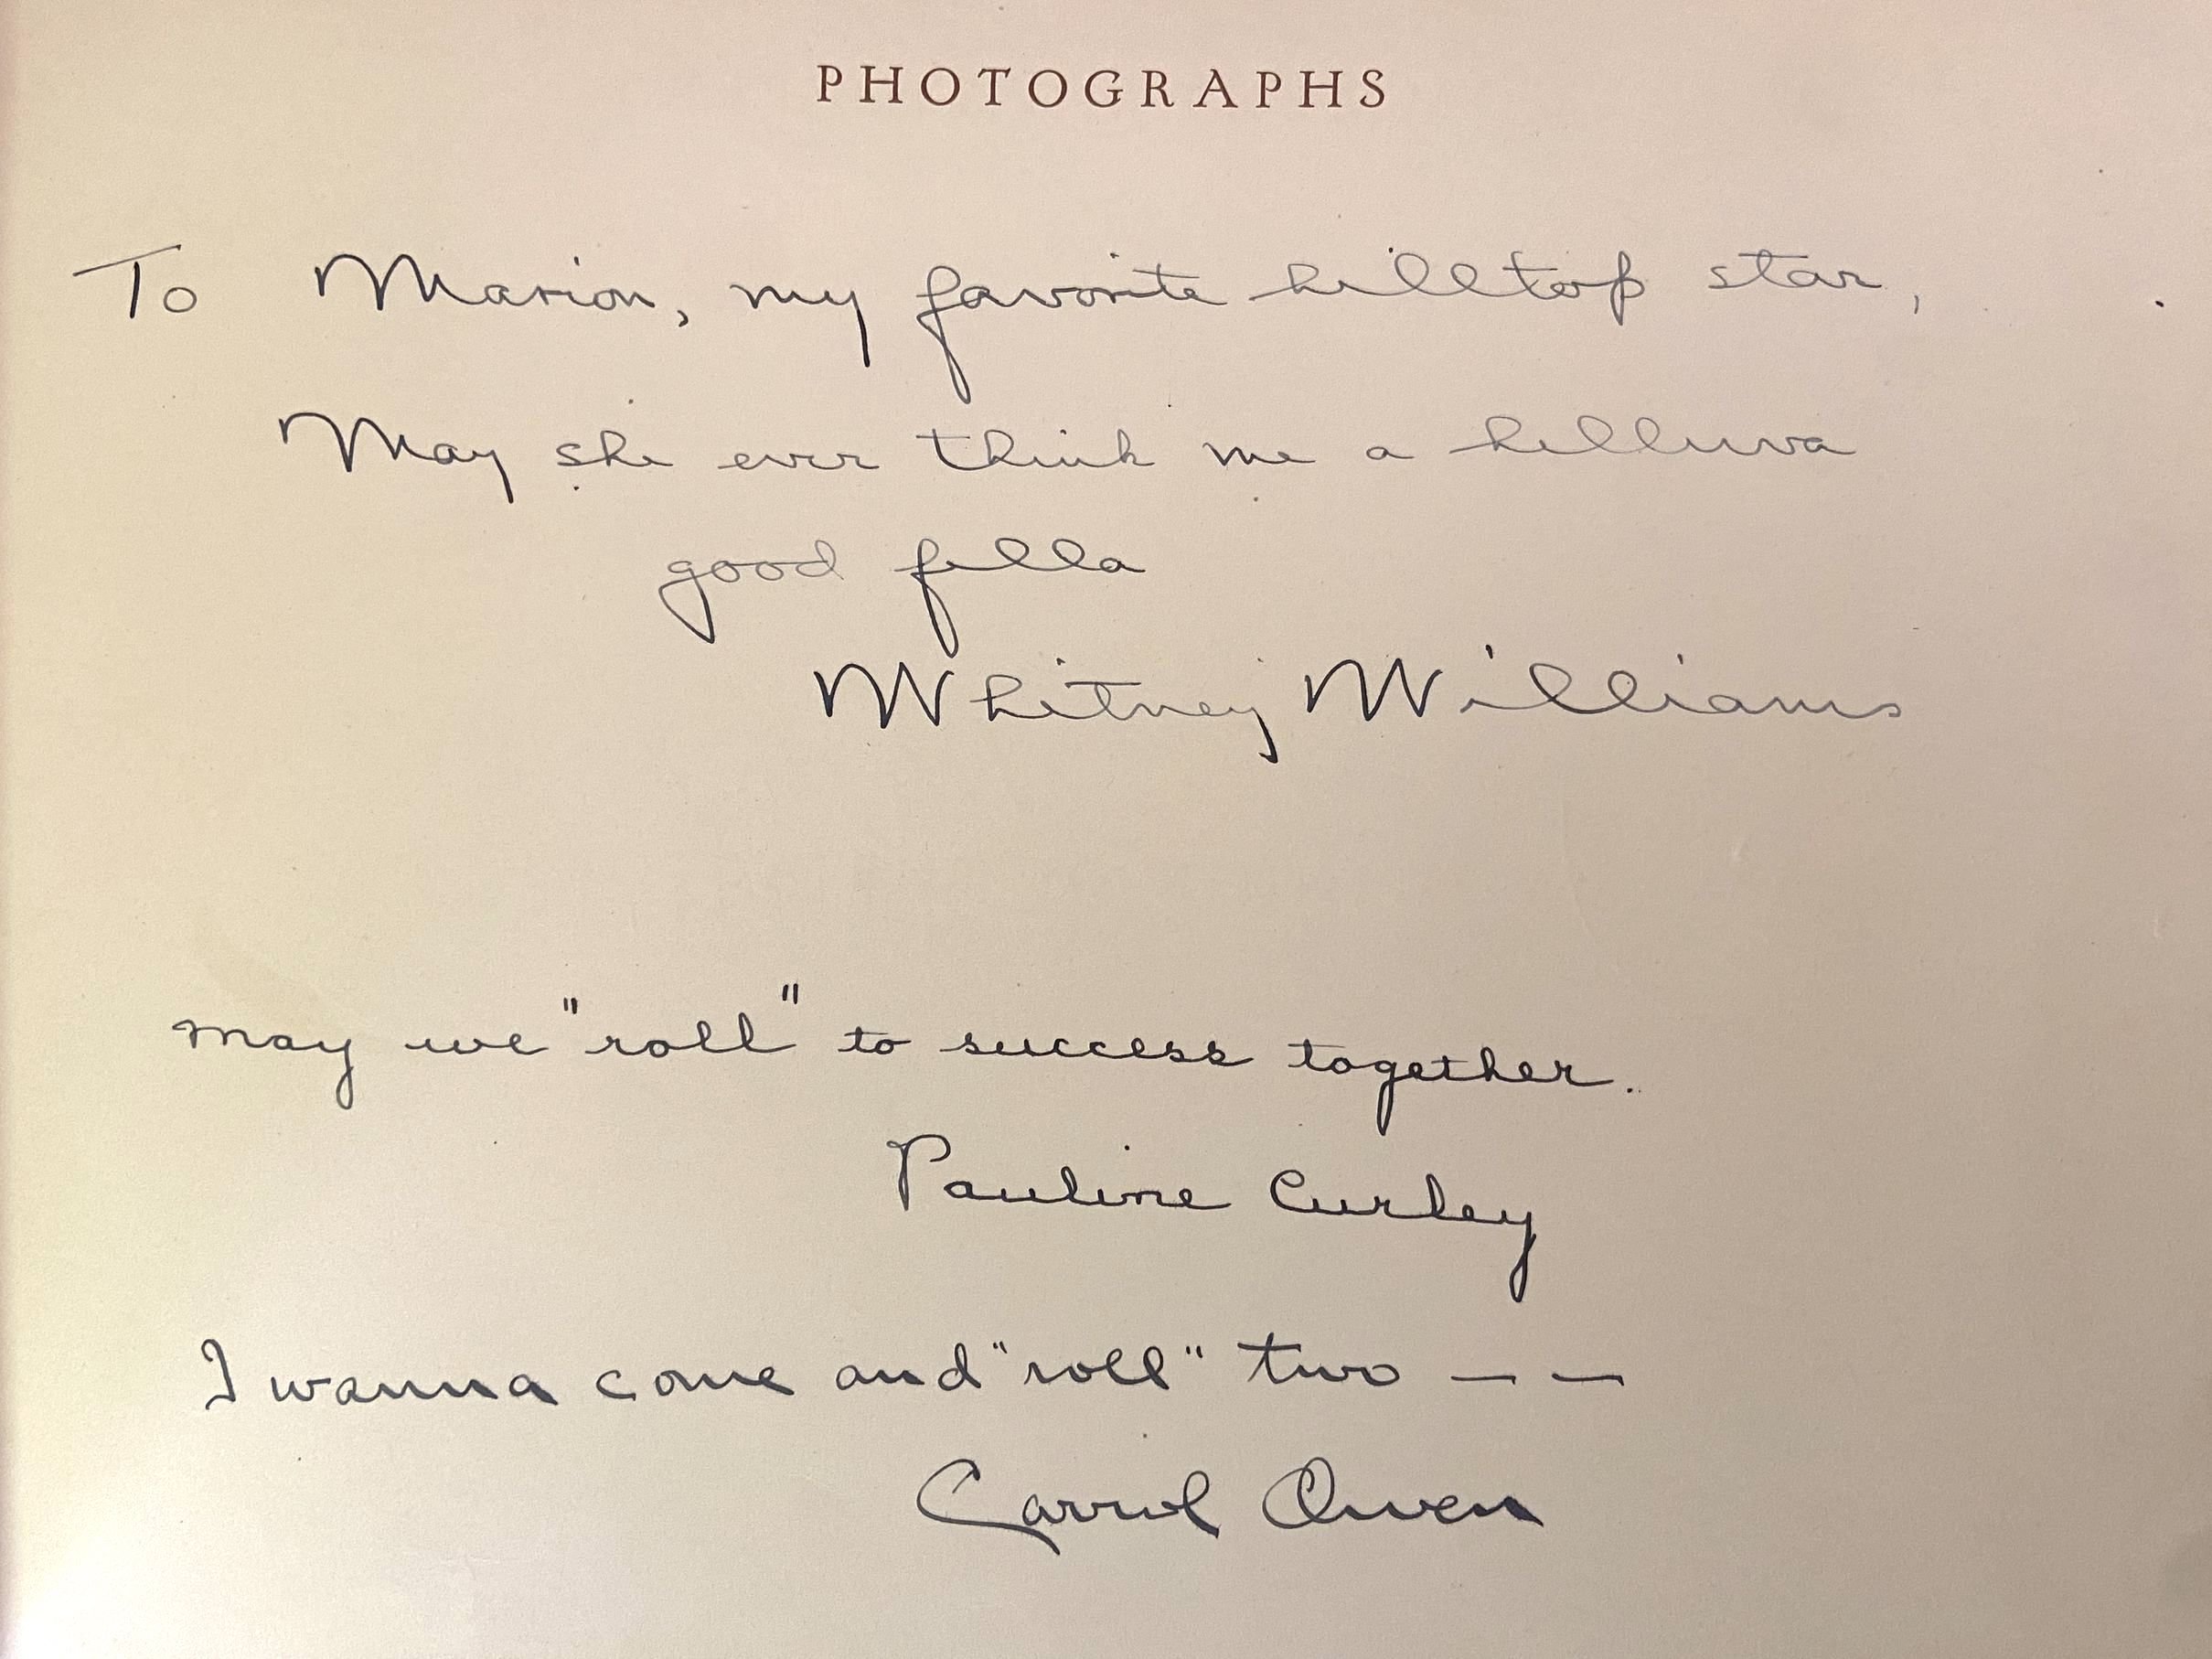 PHOTOGRAPHS
To Marion, my favorite hilltop star,
May she ever think me a helluva
good fella
Whitney Williams
May we "roll" to success together.
Pauline Curley
I wanna come and "roll" two — —
Carrol Owen